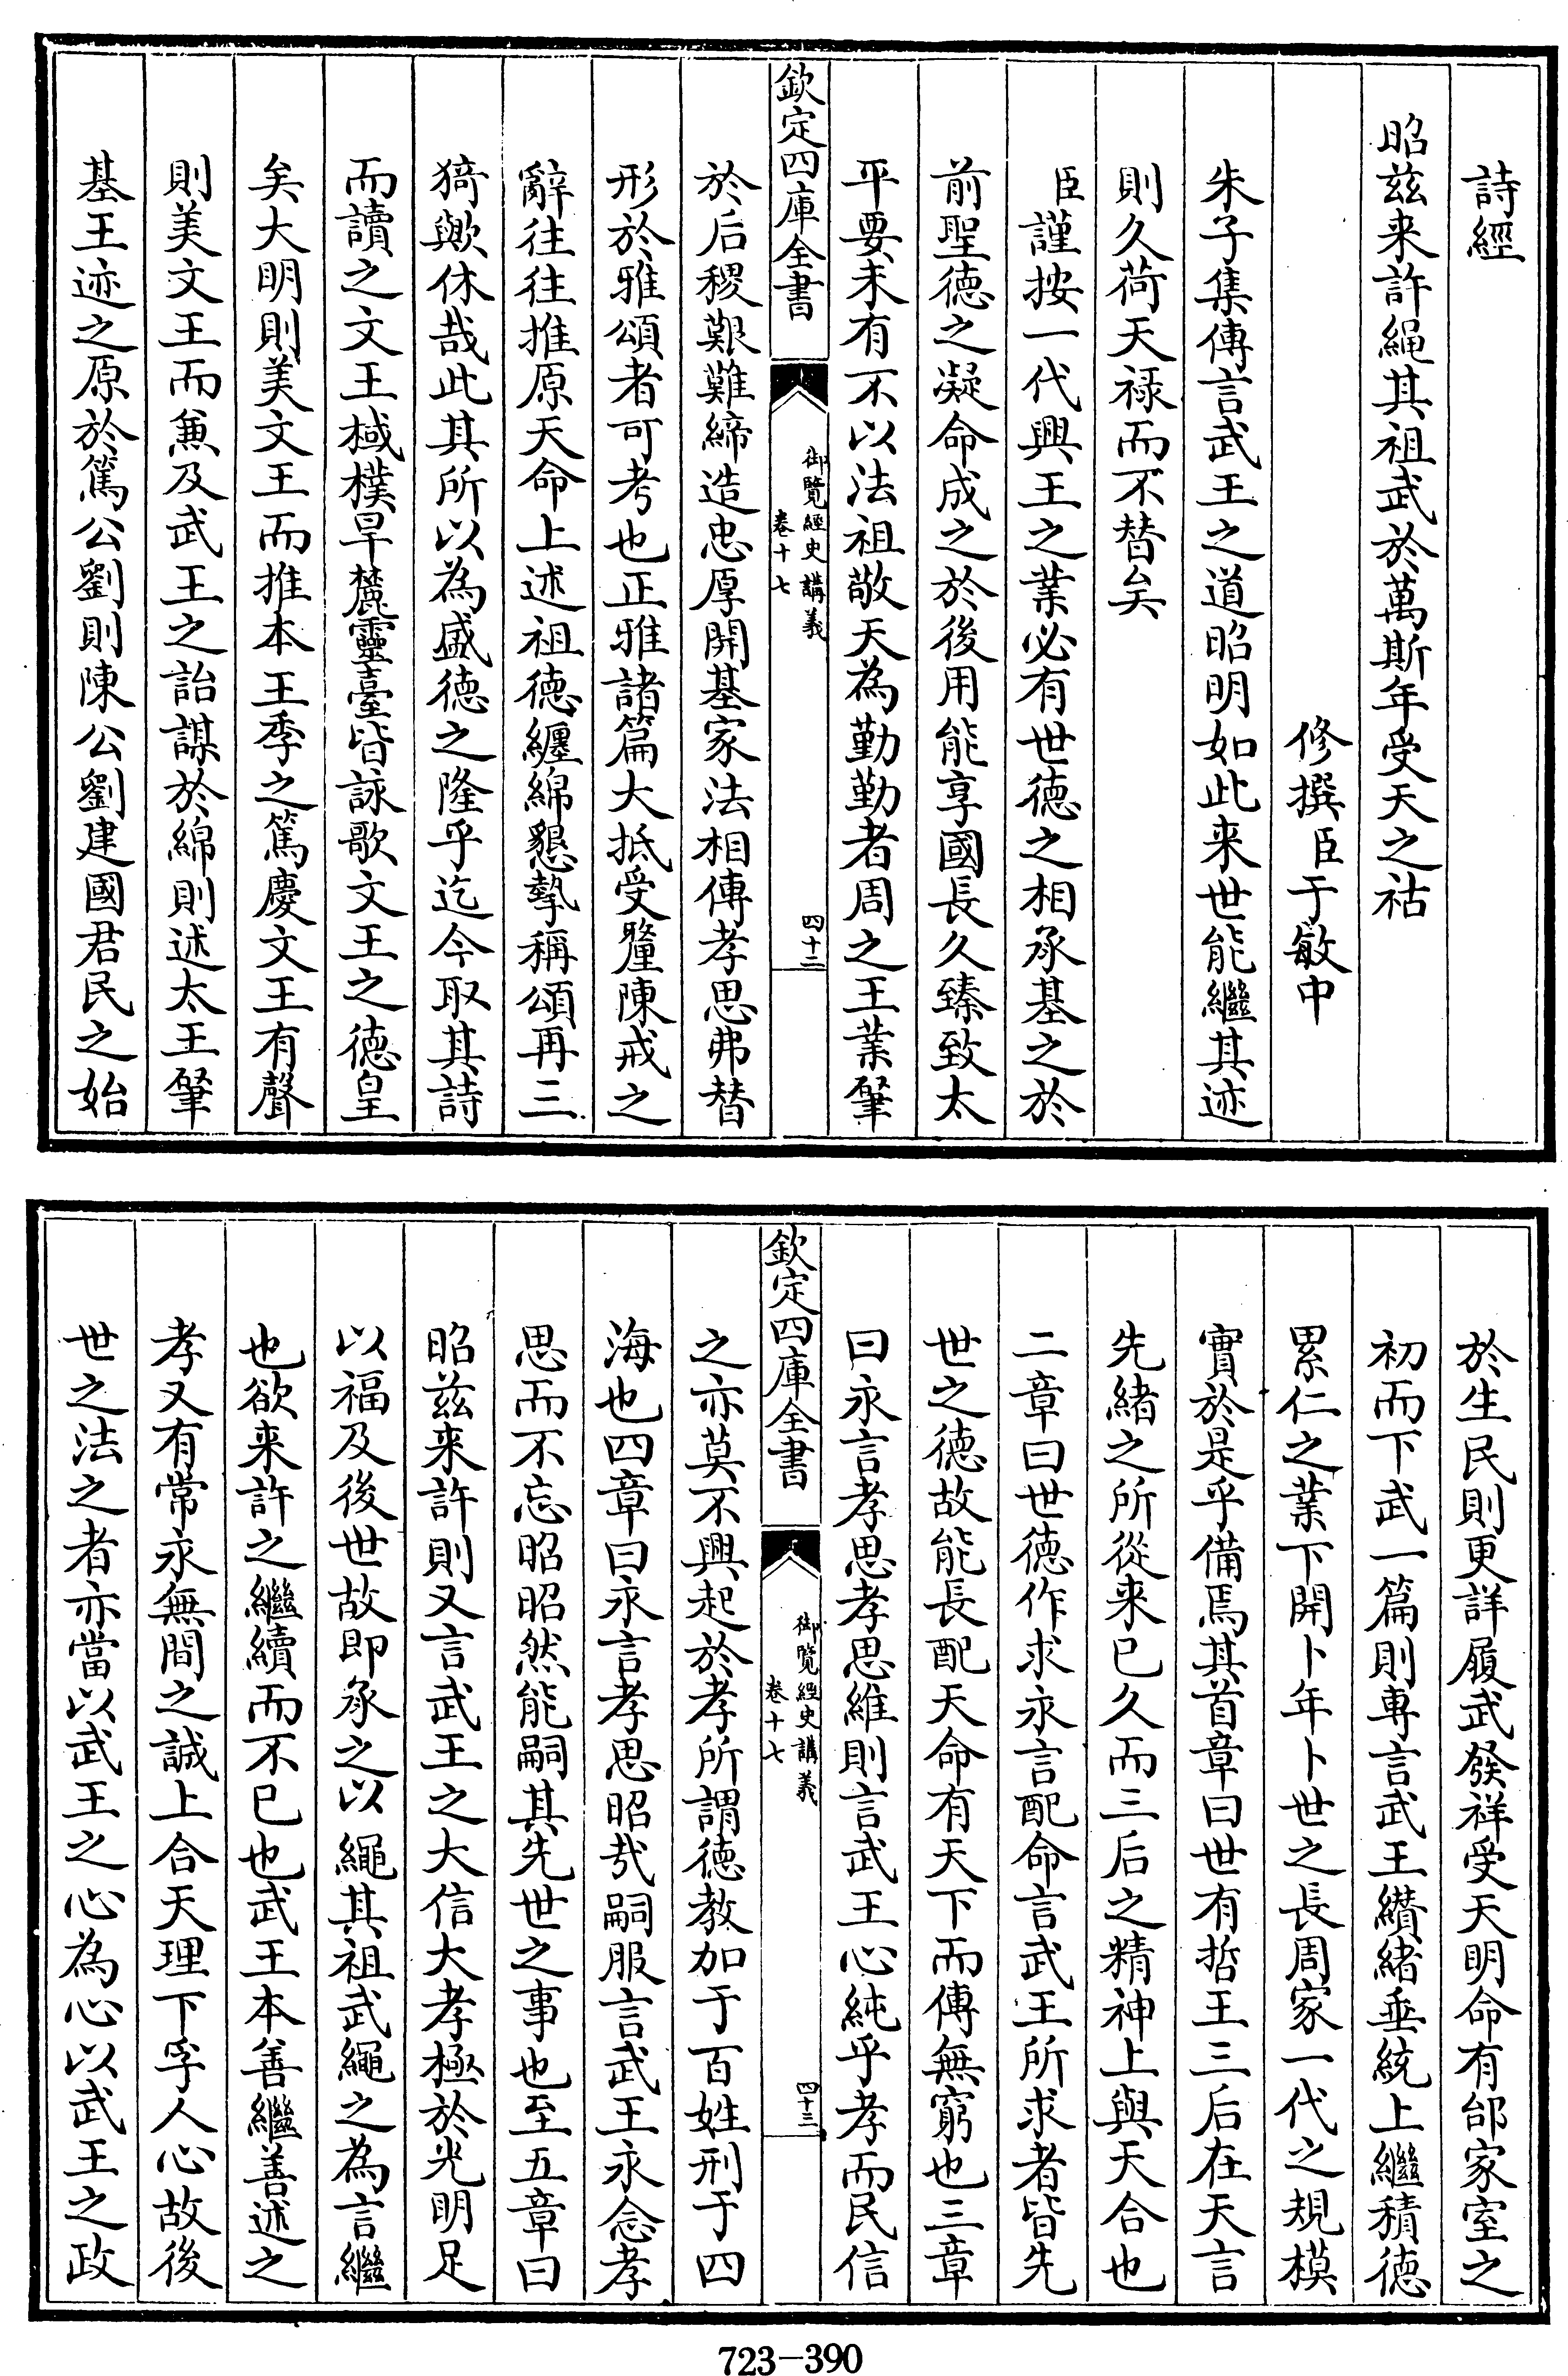 詩經
昭兹来許繩其祖武於萬斯年受天之祜
修撰臣于敏中
朱子集傳言武王之道昭明如此来世能繼其迹
則久荷天禄而不替矣
臣謹按一代興王之業必有世德之相承基之於
前聖德之凝命成之於後用能享國長久臻致太
平要未有不以法祖敬天為勤勤者周之王業肇
欽定四庫全書
御覽經史講義
卷十七
四十二
於后稷艱難締造忠厚開基家法相傳孝思弗替
形於雅頌者可考也正雅諸篇大抵受釐陳戒之
辭往往推原天命上述祖德纏綿懇摯稱頌再三
猗歟休哉此其所以為盛德之隆乎迄今取其詩
而讀之文王棫樸旱麓靈臺皆詠歌文王之德皇
矣大明則美文王而推本王季之篤慶文王有聲
則美文王而兼及武王之詒謀於綿則述太王肇
基王迹之原於篤公劉則陳公劉建國君民之始
於生民則更詳履武發祥受天明命有邰家室之
初而下武一篇則專言武王纘緒垂統上繼積德
累仁之業下開卜年卜世之長周家一代之規模
實於是乎備焉其首章曰世有哲王三后在天言
先緒之所從来已久而三后之精神上與天合也
二章曰世德作求永言配命言武王所求者皆先
世之德故能長配天命有天下而傳無窮也三章
曰永言孝思孝思維則言武王心純乎孝而民信
欽定四庫全書
御覽經史講義
卷十七
四十三
之亦莫不興起於孝所謂德教加于百姓刑于四
海也四章曰永言孝思昭哉嗣服言武王永念孝
思而不忘昭昭然能嗣其先世之事也至五章曰
昭兹来許則又言武王之大信大孝極於光明足
以福及後世故即承之以繩其祖武繩之為言繼
也欲来許之繼續而不已也武王本善繼善述之
孝又有常永無間之誠上合天理下孚人心故後
世之法之者亦當以武王之心為心以武王之政
723-390